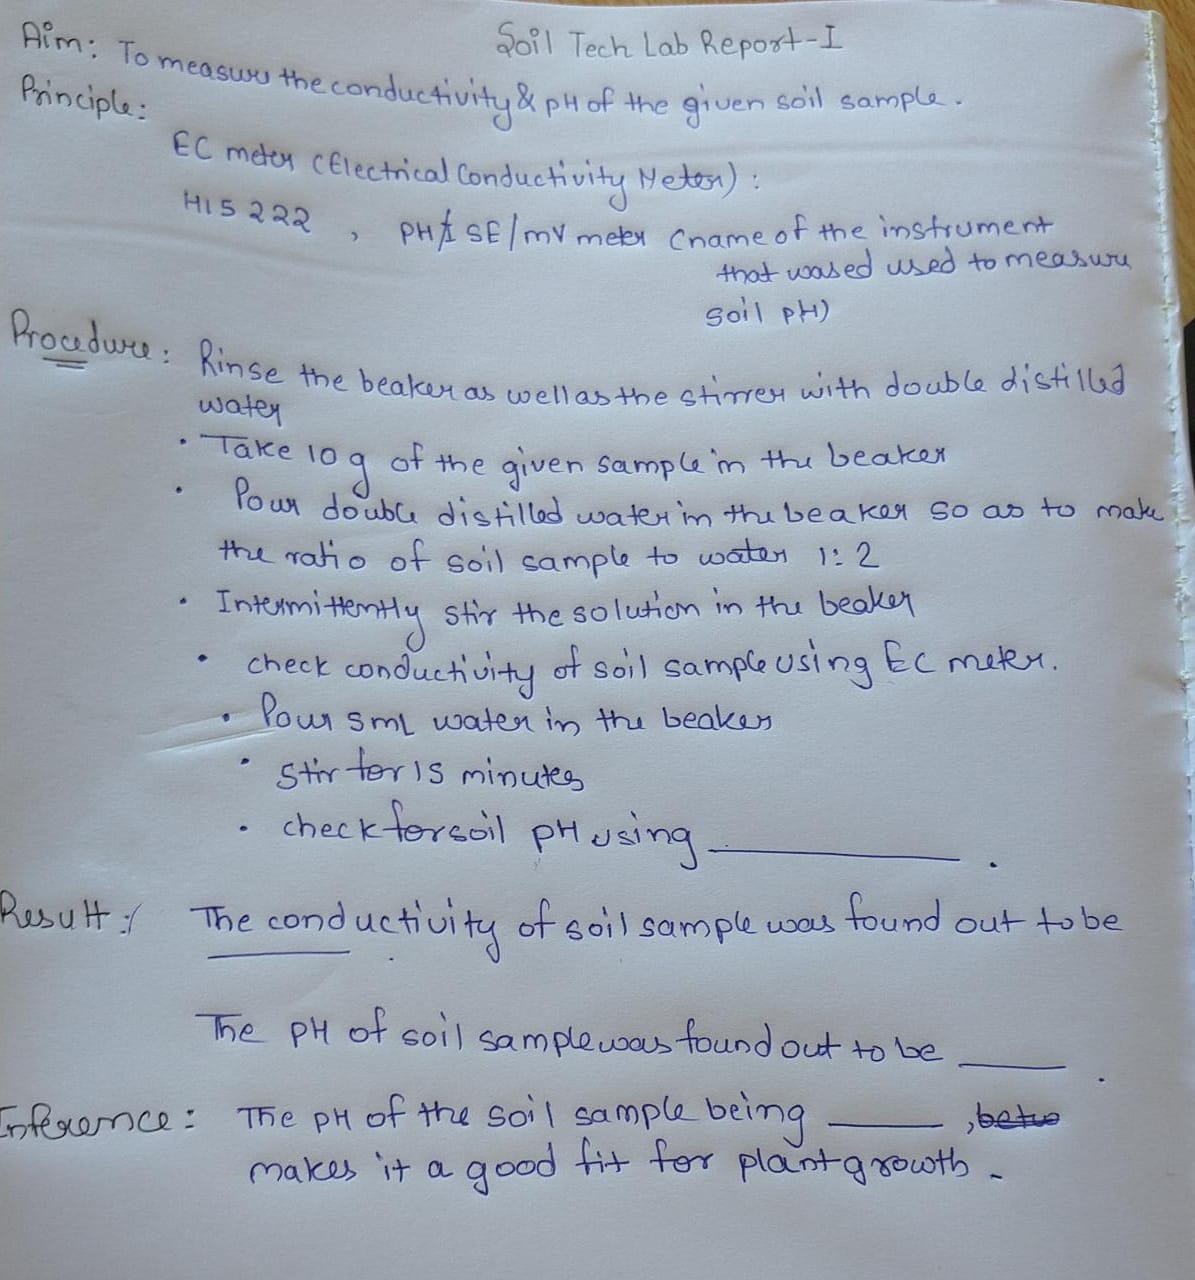 Soil Tech Lab Report-I
Aim: To measure the conductivity & pH of the given soil sample.
Principle:
EC meter (Electrical Conductivity Meter) :
HI5222 , PH/ISE/mV meter (name of the instrument
that wased used to measure
soil pH)
Procedure: Rinse the beaker as well as the stirrer with double distilled
water
• Take 10 g of the given sample in the beaker
• Pour double distilled water in the beaker so as to make
the ratio of soil sample to water 1:2
• Intermittently stir the solution in the beaker
• check conductivity of soil sample using EC meter.
• Pour 5mL water in the beaker
• stir for 15 minutes
• check for soil pH using ________ .
Result :/ The conductivity of soil sample was found out to be
____ .
The pH of soil sample was found out to be ____ .
Inference: The pH of the soil sample being ____ , betwe
makes it a good fit for plant growth.